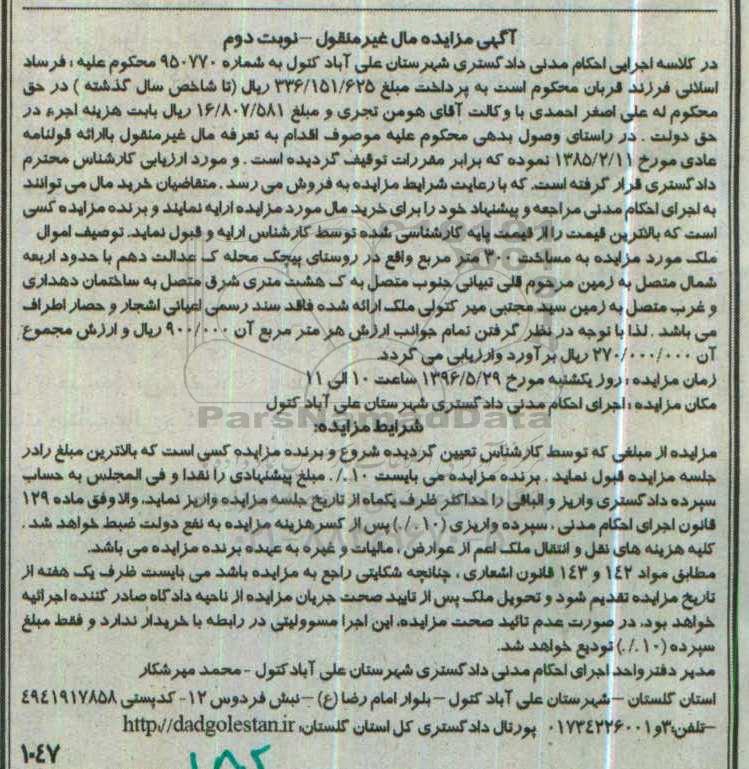 آگهی مزایده مال غیر منقول –نوبت دوم
در کلاسه اجرایی احکام مدنی دادگستری شهرستان علی آباد کتول به شماره ۹۵۰۷۷۰ محکوم علیه ؛ فرساد
اسلانی فرزند قربان محکوم است به پرداخت مبلغ ۳۳۶/۱۵۱/۶۲۵ ریال (تا شاخص سال گذشته ) در حق
محکوم له علی اصغر احمدی با وکالت آقای هومن تجری و مبلغ ۱۶/۸۰۷/۵۸۱ ریال بابت هزینه اجرء در
حق دولت . در راستای وصول بدهی محکوم علیه موصوف اقدام به تعرفه مال غیرمنقول باارائه قولنامه
عادی مورخ ۱۳۸۵/۲/۱۱ نموده که برابر مقررات توقیف گردیده است . و مورد ارزیابی کارشناس محترم
دادگستری قرار گرفته است. که با رعایت شرایط مزایده به فروش می رسد . متقاضیان خرید مال می توانند
به اجرای احکام مدنی مراجعه و پیشنهاد خود را برای خرید مال مورد مزایده ارایه نمایند و برنده مزایده کسی
است که بالاترین قیمت را از قیمت پایه کارشناسی شده توسط کارشناس ارایه و قبول نماید. توصیف اموال
ملک مورد مزایده به مساحت ۳۰۰ متر مربع واقع در روستای پیچک محله ک عدالت دهم با حدود اربعه
شمال متصل به زمین مرحوم قلی تبیانی جنوب متصل به ک هشت متری شرق متصل به ساختمان دهداری
و غرب متصل به زمین سید مجتبی میر کتولی ملک ارائه شده فاقد سند رسمی اعیانی اشجار و حصار اطراف
می باشد . لذا با توجه در نظر گرفتن تمام جوانب ارزش هر متر مربع آن ۹۰۰/۰۰۰ ریال و ارزش مجموع
آن ۲۷۰/۰۰۰/۰۰۰ ریال بر آورد وارزیابی می گردد.
زمان مزایده ؛ روز یکشنبه مورخ ۱۳۹۶/۵/۲۹ ساعت ۱۰ الی ۱۱
مکان مزایده ؛ اجرای احکام مدنی دادگستری شهرستان علی آباد کتول
ParsNamadData
شرایط مزایده:
مزایده از مبلغی که توسط کارشناس تعیین گردیده شروع و برنده مزایده کسی است که بالاترین مبلغ رادر
جلسه مزایده قبول نماید . برنده مزایده می بایست ۱۰./. مبلغ پیشنهادی را نقدا و فی المجلس به حساب
سپرده دادگستری واریز و الباقی را حداکثر ظرف یکماه از تاریخ جلسه مزایده واریز نماید. والا وفق ماده ۱۲۹
قانون اجرای احکام مدنی ، سپرده واریزی (۱۰./.) پس از کسر هزینه مزایده به نفع دولت ضبط خواهد شد .
کلیه هزینه های نقل و انتقال ملک اعم از عوارض ، مالیات و غیره به عهده برنده مزایده می باشد.
مطابق مواد ۱۴۲ و ۱۴۳ قانون اشعاری ، چنانچه شکایتی راجع به مزایده باشد می بایست ظرف یک هفته از
تاریخ مزایده تقدیم شود و تحویل ملک پس از تایید صحت جریان مزایده از ناحیه دادگاه صادر کننده اجرائیه
خواهد بود، در صورت عدم تائید صحت مزایده، این اجرا مسوولیتی در رابطه با خریدار ندارد و فقط مبلغ
سپرده (۱۰./.) تودیع خواهد شد.
مدیر دفتر واحد اجرای احکام مدنی دادگستری شهرستان علی آباد کتول - محمد میرشکار
استان گلستان –شهرستان علی آباد کتول – بلوار امام رضا (ع) –نبش فردوس ۱۲- کدپستی ۴۹۴۱۹۱۷۸۵۸
–تلفن:۳و۰۱۷۳۴۲۲۶۰۰۱ پورتال دادگستری کل استان گلستان؛ http://dadgolestan.ir
۱۰۴۷